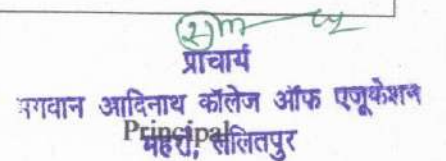 प्राचार्य
भगवान आदिनाथ कॉलेज ऑफ एजूकेशन
Principal
महर्रा, ललितपुर